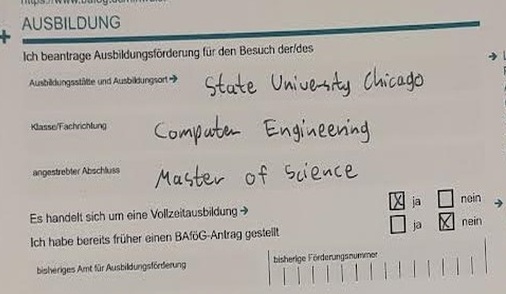 AUSBILDUNG
Ich beantrage Ausbildungsförderung für den Besuch der/des
Ausbildungsstätte und Ausbildungsort → State University Chicago
Klasse/Fachrichtung Computer Engineering
angestrebter Abschluss Master of Science
Es handelt sich um eine Vollzeitausbildung → ☒ ja ☐ nein →
Ich habe bereits früher einen BAföG-Antrag gestellt ☐ ja ☒ nein
bisheriges Amt für Ausbildungsförderung bisherige Förderungsnummer